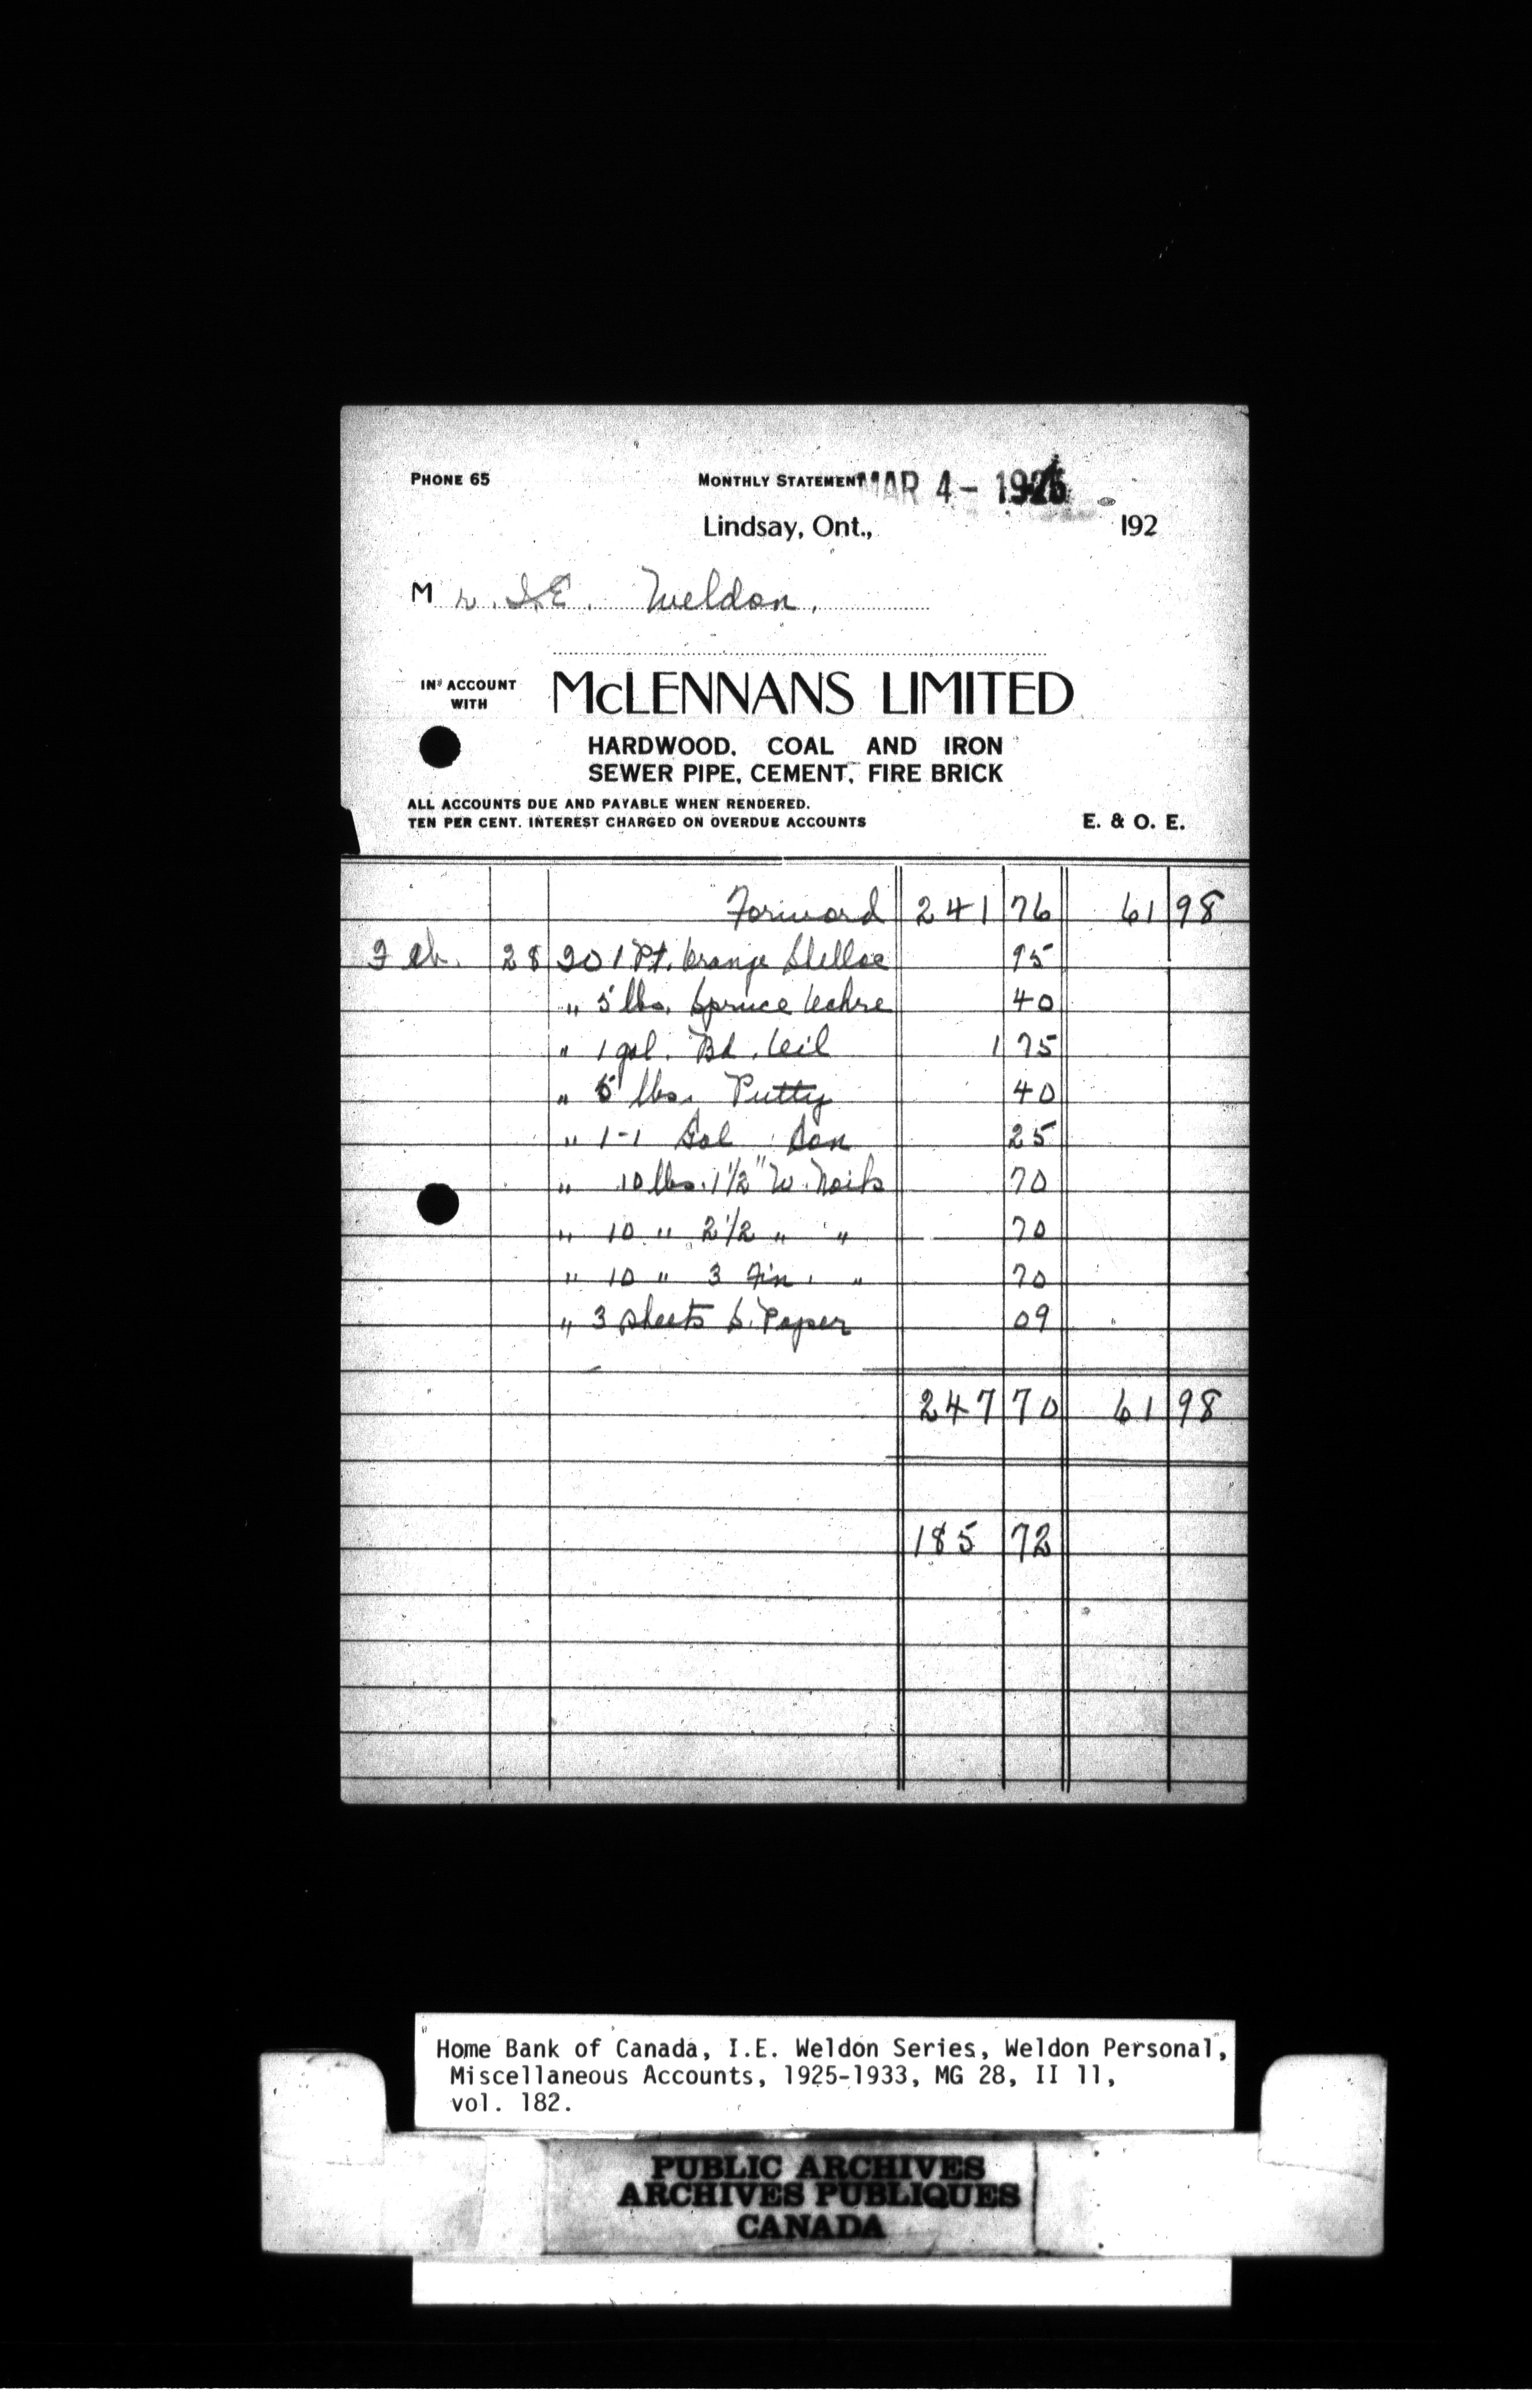 PHONE 65 MONTHLY STATEMENT MAR 4 - 1925
Lindsay, Ont., 192
Mr. I.E. Weldon.
IN ACCOUNT WITH McLENNANS LIMITED
HARDWOOD, COAL AND IRON
SEWER PIPE, CEMENT, FIRE BRICK
ALL ACCOUNTS DUE AND PAYABLE WHEN RENDERED.
TEN PER CENT. INTEREST CHARGED ON OVERDUE ACCOUNTS E. & O. E.
Forward 241 76 61 98
Feb. 28 To 1 Pt. Orange Shellac 95
" 5 lbs. Spruce Ochre 40
" 1 gal. Bd. Oil 1 75
" 5 lbs. Putty 40
" 1-1 Gal Can 25
" 10 lbs. 1 1/2" W. Nails 70
" 10 " 2 1/2 " " 70
" 10 " 3 Fin. " 70
" 3 sheets S. Paper 09
247 70 61 98
185 72
Home Bank of Canada, I.E. Weldon Series, Weldon Personal,
Miscellaneous Accounts, 1925-1933, MG 28, II 11,
vol. 182.
PUBLIC ARCHIVES
ARCHIVES PUBLIQUES
CANADA